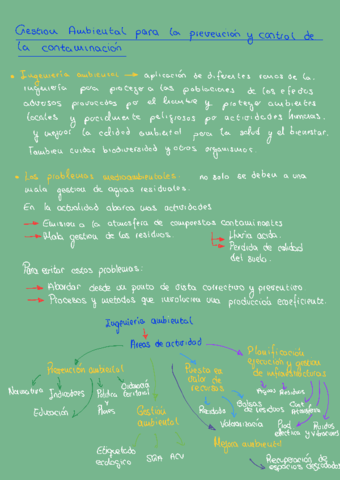 Gestion Ambiental para la prevención y control de
la contaminación
• Ingeniería ambiental → aplicación de diferentes ramas de la
ingeniería para proteger a las poblaciones de los efectos
adversos provocados por el humano y proteger ambientes
locales y potencialmente peligrosos por actividades humanas
y mejorar la calidad ambiental para la salud y el bienestar.
Tambien cuidar biodiversidad y otros organismos.
• Los problemas medioambientales no solo se deben a una
mala gestion de aguas residuales.
En la actualidad abarca mas actividades
→ Emision a la atmosfera de compuestos contaminantes
→ Mala gestion de los residuos.
→ Lluvia acida.
→ Perdida de calidad
del suelo.
Para evitar estos problemas:
→ Abordar desde un punto de vista correctivo y preventivo
→ Procesos y metodos que involucren una producción ecoeficiente.
Ingeniería ambiental
Areas de actividad
Prevención ambiental
Puesta en
valor de
recursos
Planificación
ejecución y gestion
de infraestructuras
Normativa
Indicadores
Educación
Politica
y
Planes
Evaluación
ambiental
Gestion
ambiental
Etiquetado
ecologico
SGA
ACV
Reciclado
Valorización
Bolsas
de residuos
Aguas
Residuos
Cont
Atmosfera
Prod
electrica
Ruidos
y vibraciones
Mejora ambiental
Recuperación de
espacios degradados